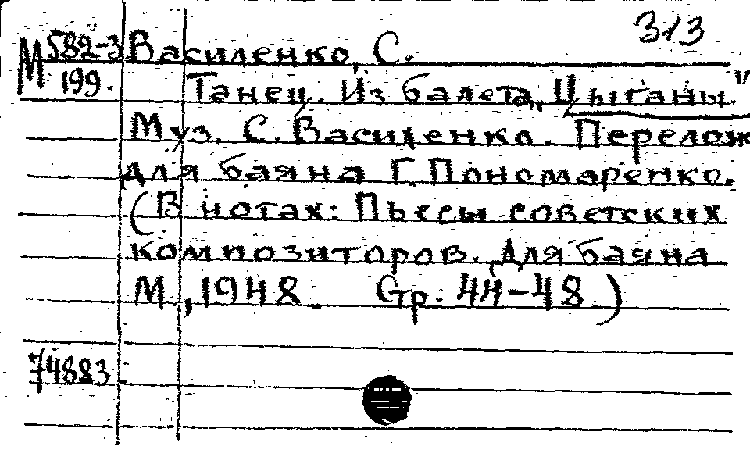 313
М 582-3 Василенко, С.
199.
Танец. Из балета „Цыганы"
Муз. С. Василенко. Перелож
для баяна Г. Пономаренко.
(В нотах: Пьесы советских
композиторов. Для баяна
М, 1948. Стр. 44-48)
74883